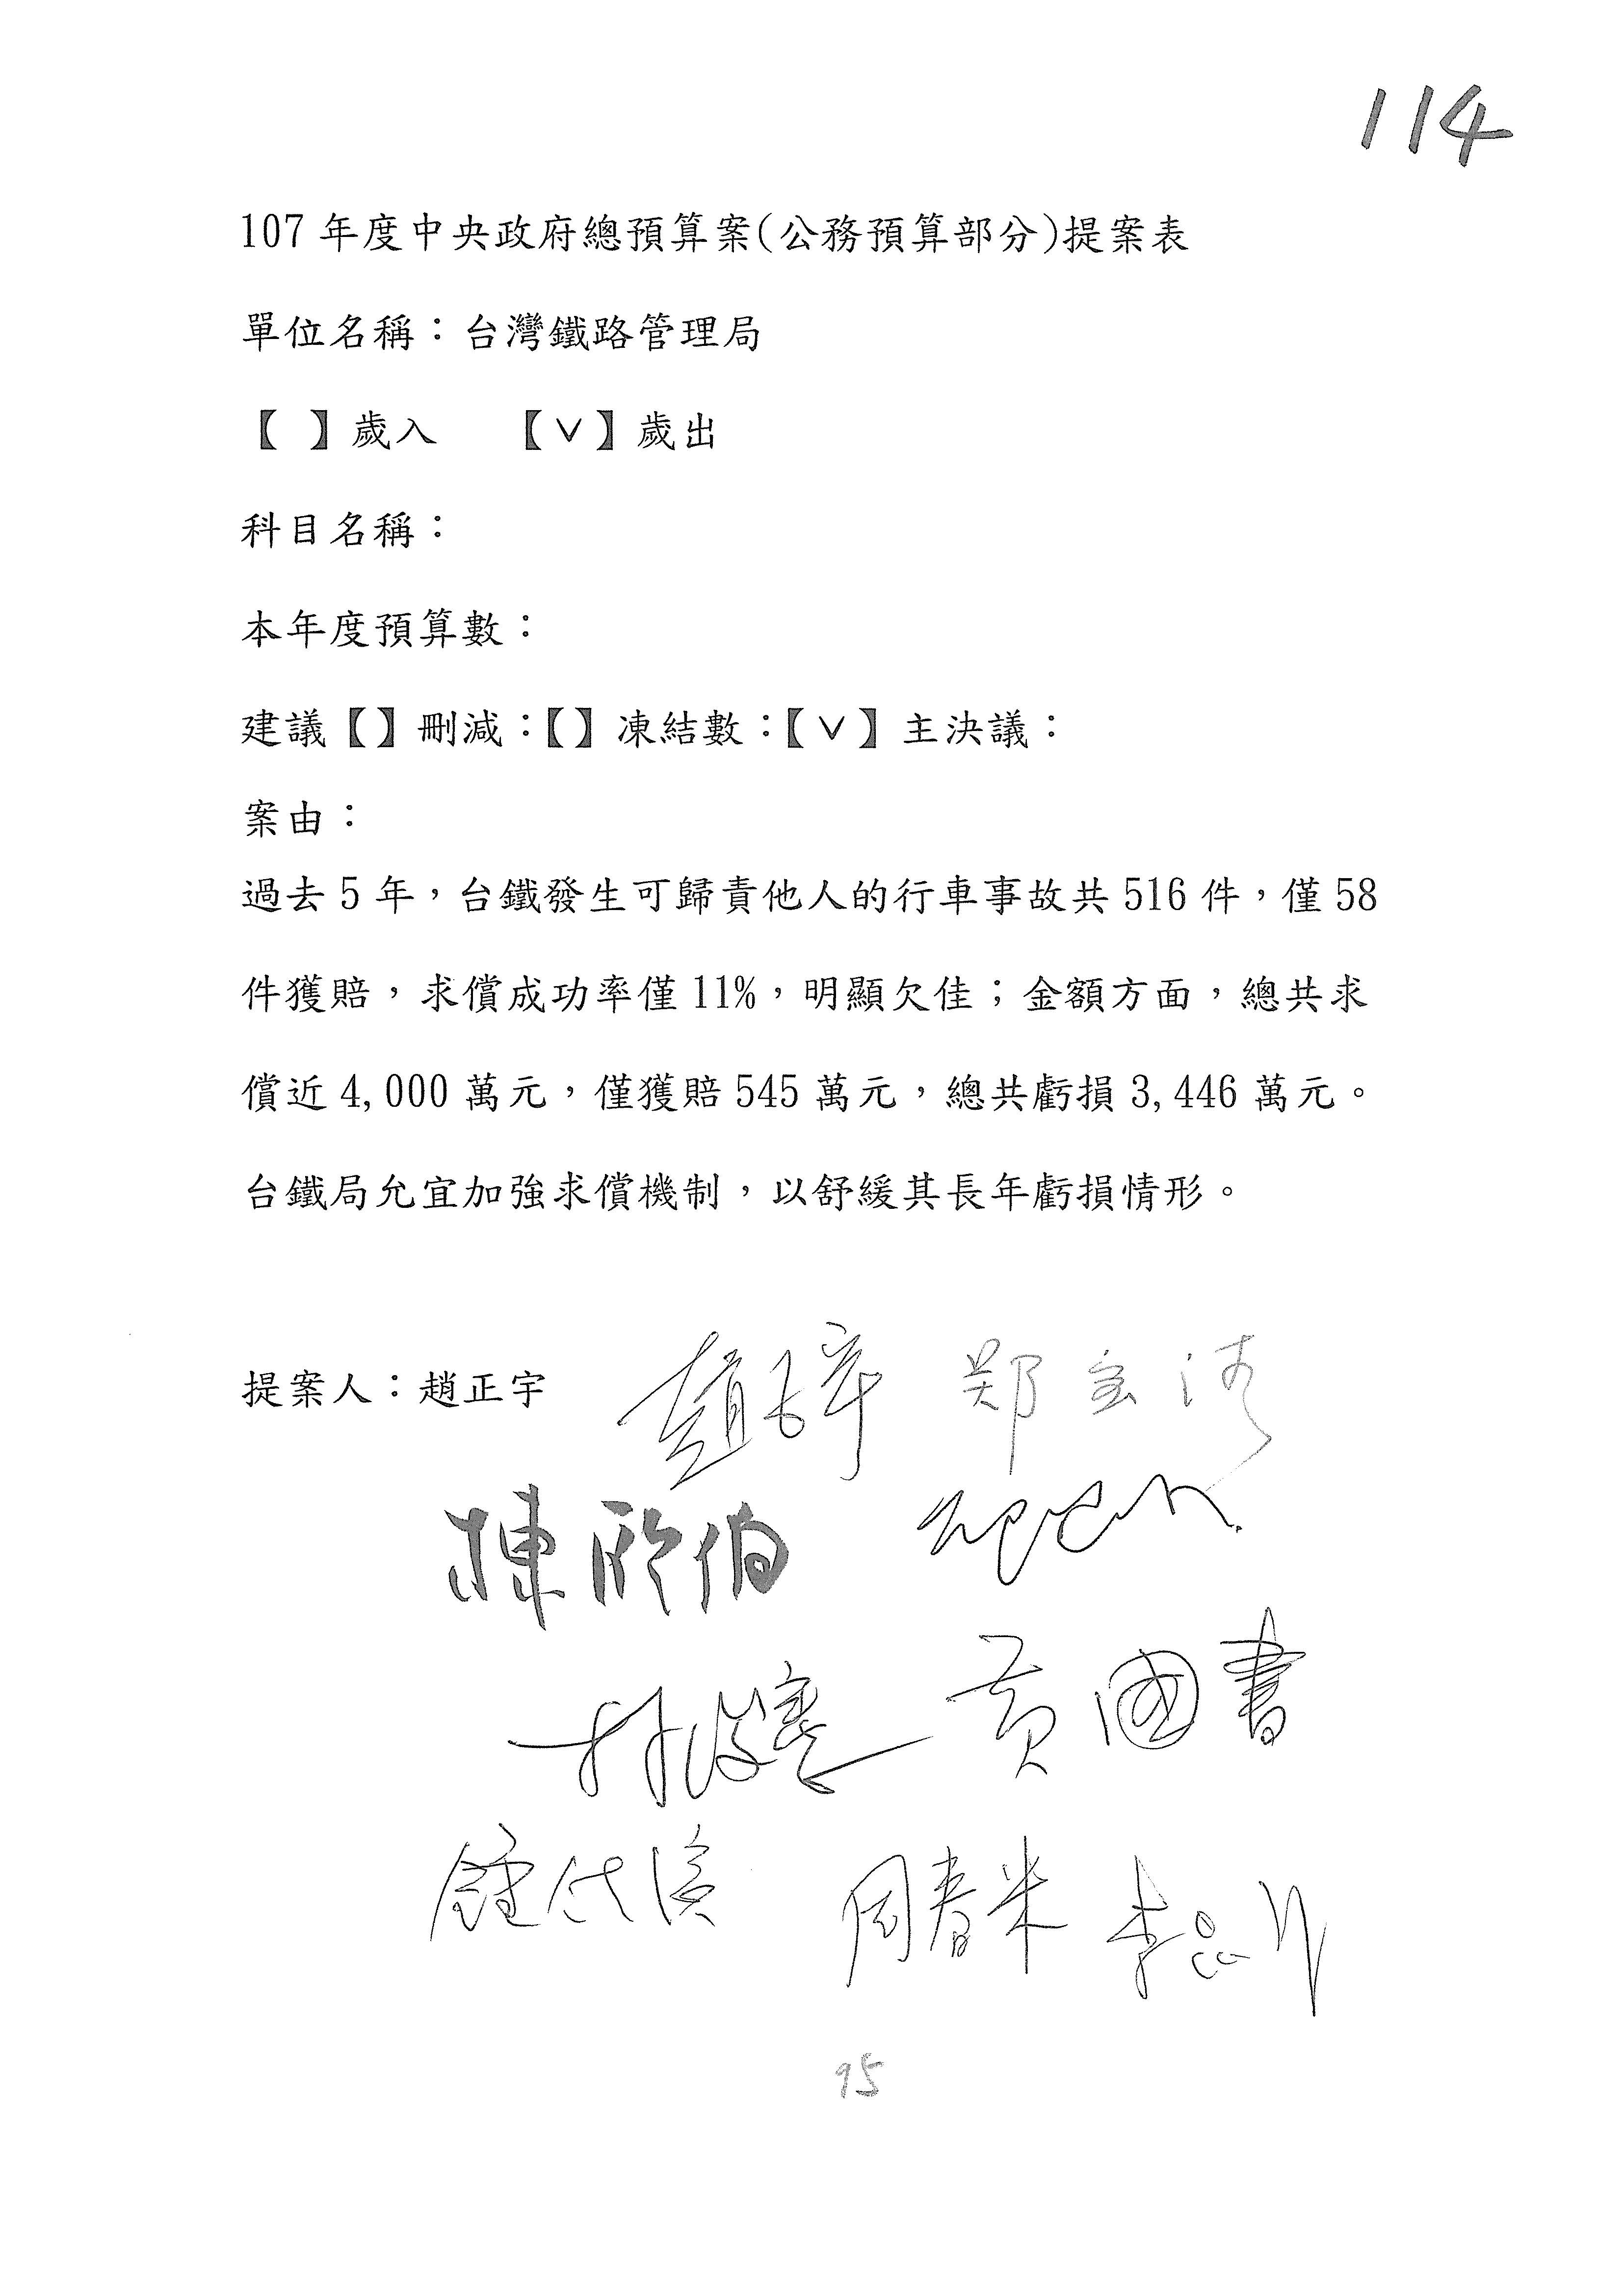 114
107 年度中央政府總預算案(公務預算部分)提案表
單位名稱：台灣鐵路管理局
【 】歲入 【∨】歲出
科目名稱：
本年度預算數：
建議【】刪減：【】凍結數：【∨】主決議：
案由：
過去 5 年，台鐵發生可歸責他人的行車事故共 516 件，僅 58
件獲賠，求償成功率僅 11%，明顯欠佳；金額方面，總共求
償近 4,000 萬元，僅獲賠 545 萬元，總共虧損 3,446 萬元。
台鐵局允宜加強求償機制，以舒緩其長年虧損情形。
提案人：趙正宇 趙正宇 鄭宝清
陳歐珀
林俊憲 黃國書
鍾佳濱 周春米
95